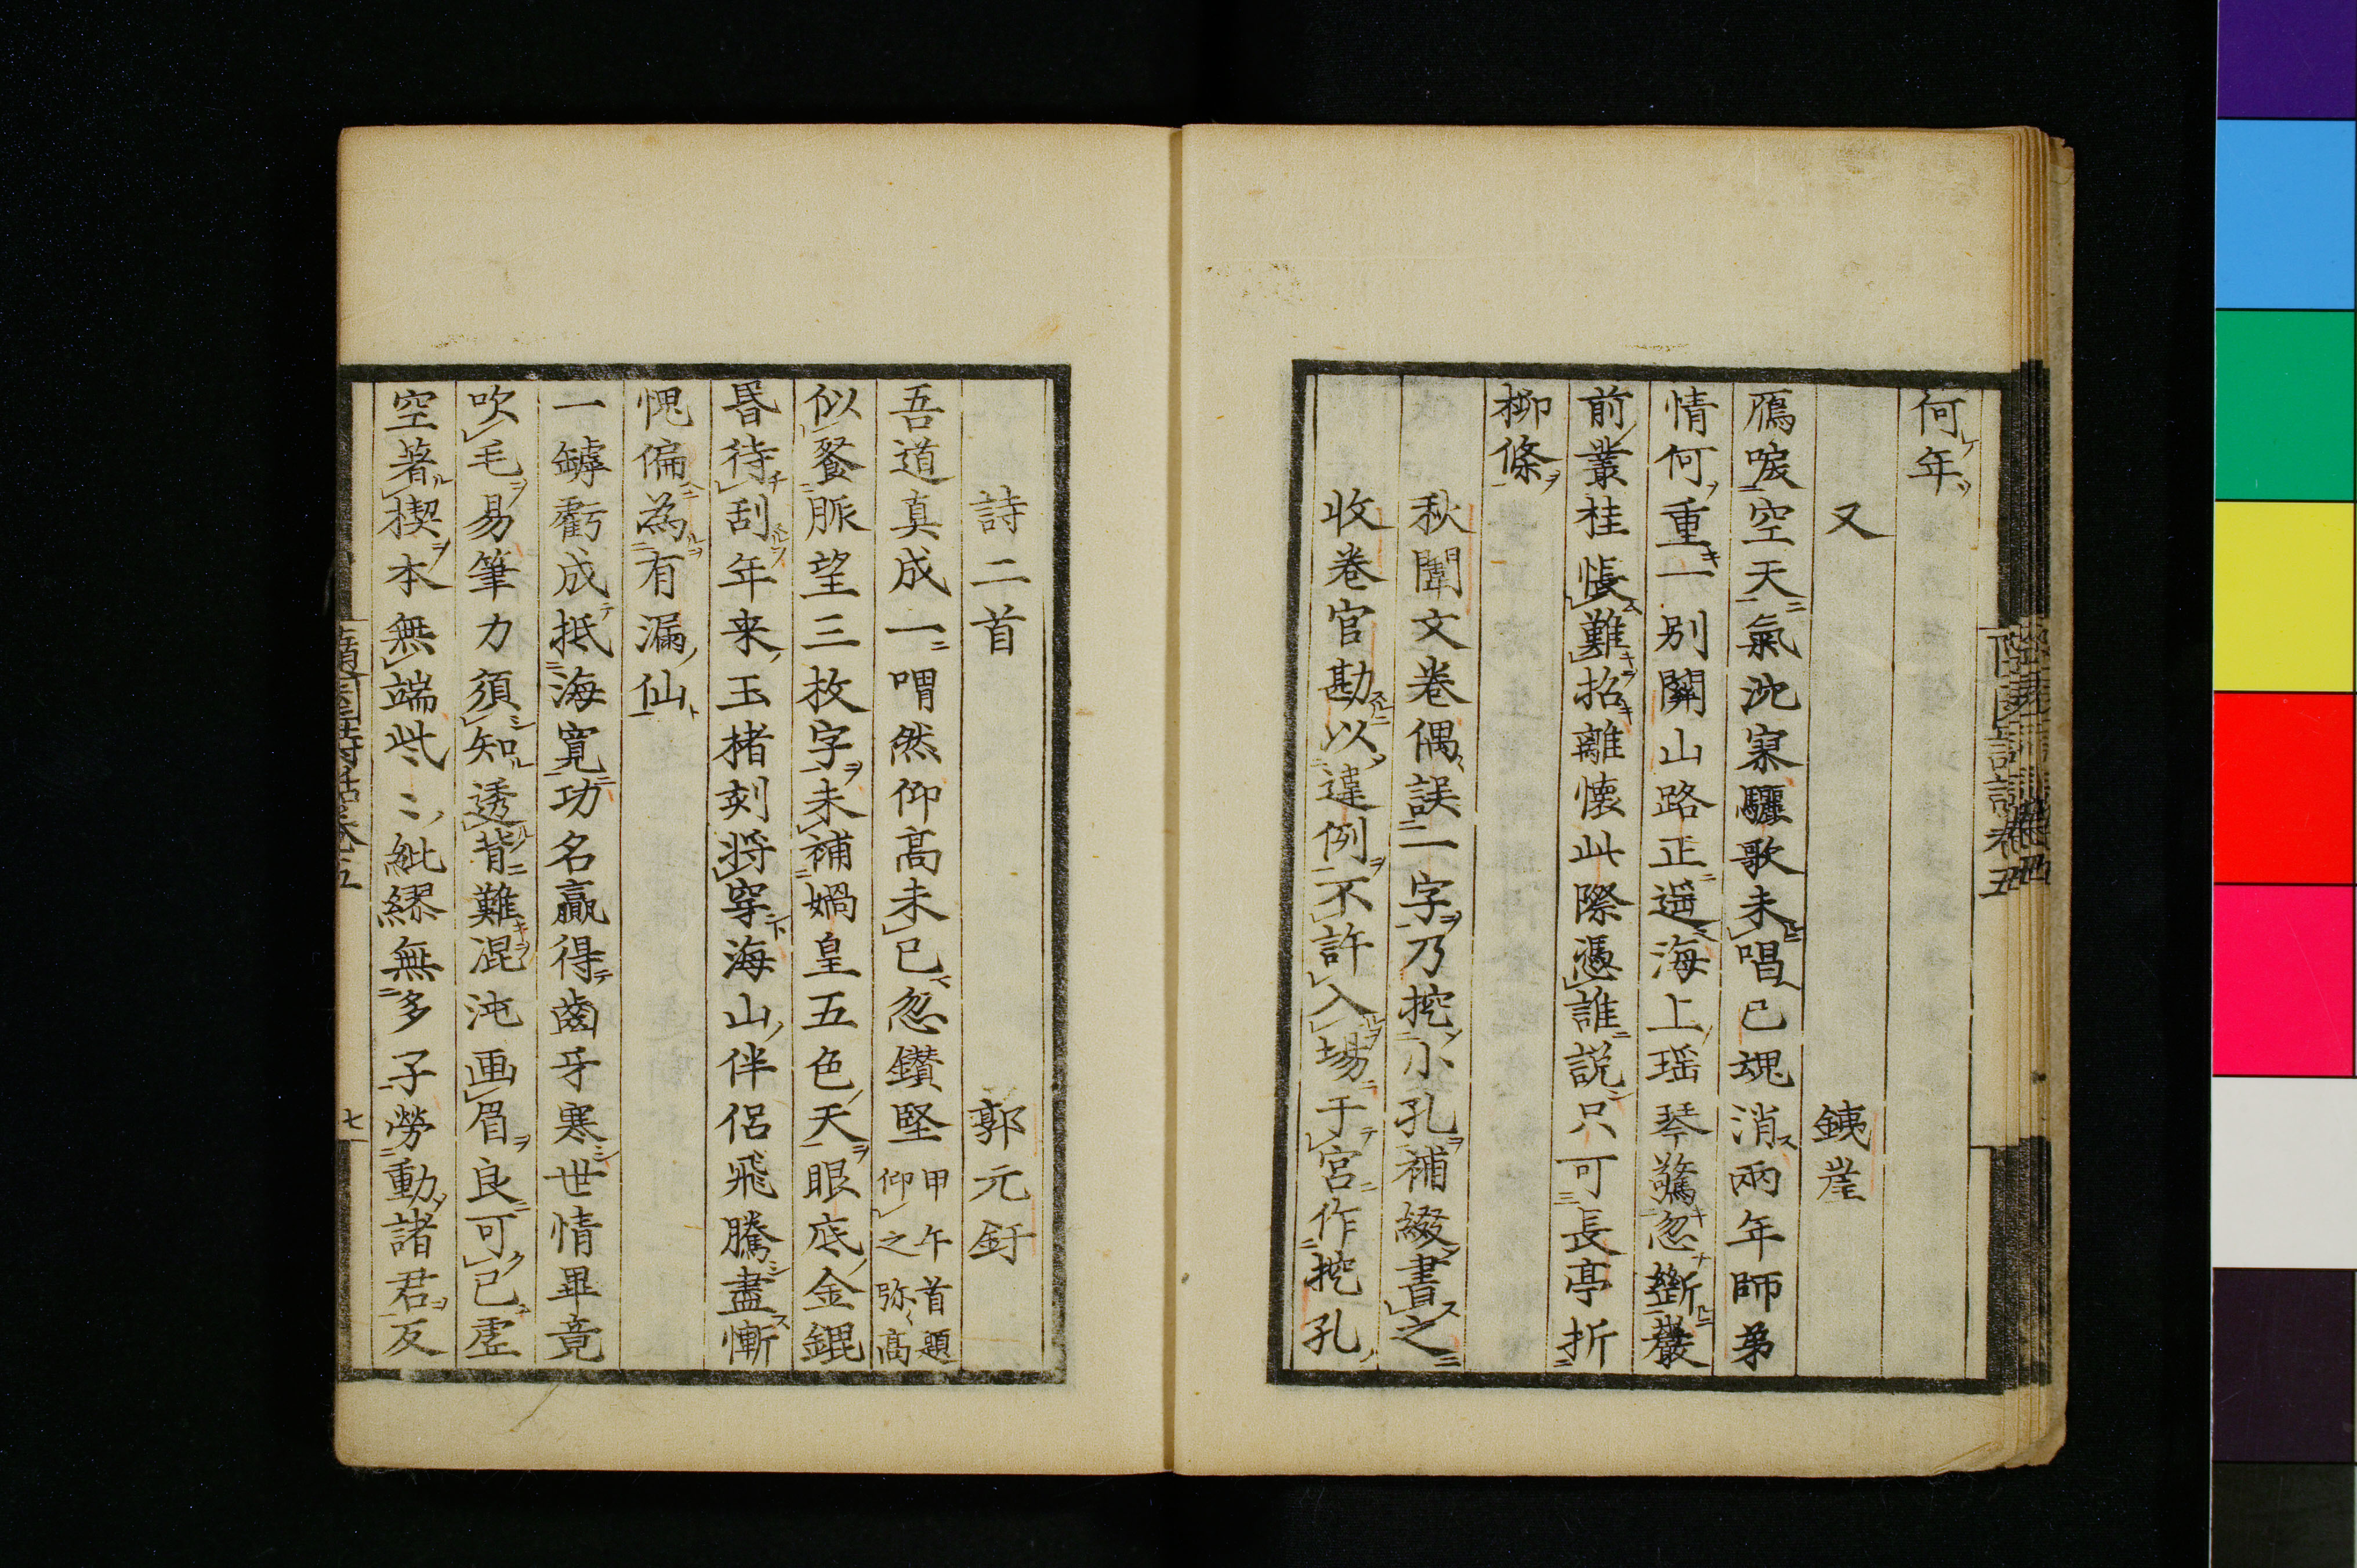 何年
又　鐵崖
鴈唳空天氣沈寥驪歌未唱已魂消兩年師弟
情何重一別關山路正遥海上瑶琴驚忽斷巖
前叢桂悵難招離懷此際憑誰説只可長亭折
柳條
秋闈文巻偶誤一字乃挖小孔補綴書之
收巻官勘以違例不許入場于宮作挖孔
詩二首　郭元釪
吾道真成一喟然仰高未已忽鑚堅甲午首題
仰之弥高
似餐脈望三枚字未補媧皇五色天眼底金錕
昏待刮年来玉楮刻将穿海山伴侣飛騰盡慚
愧偏為有漏仙
一罅虧成抵海寛功名贏得齒牙寒世情畢竟
吹毛易筆力須知透背難混沌画眉良可已虚
空著楔本無端些〻紕繆無多子勞動諸君反
七